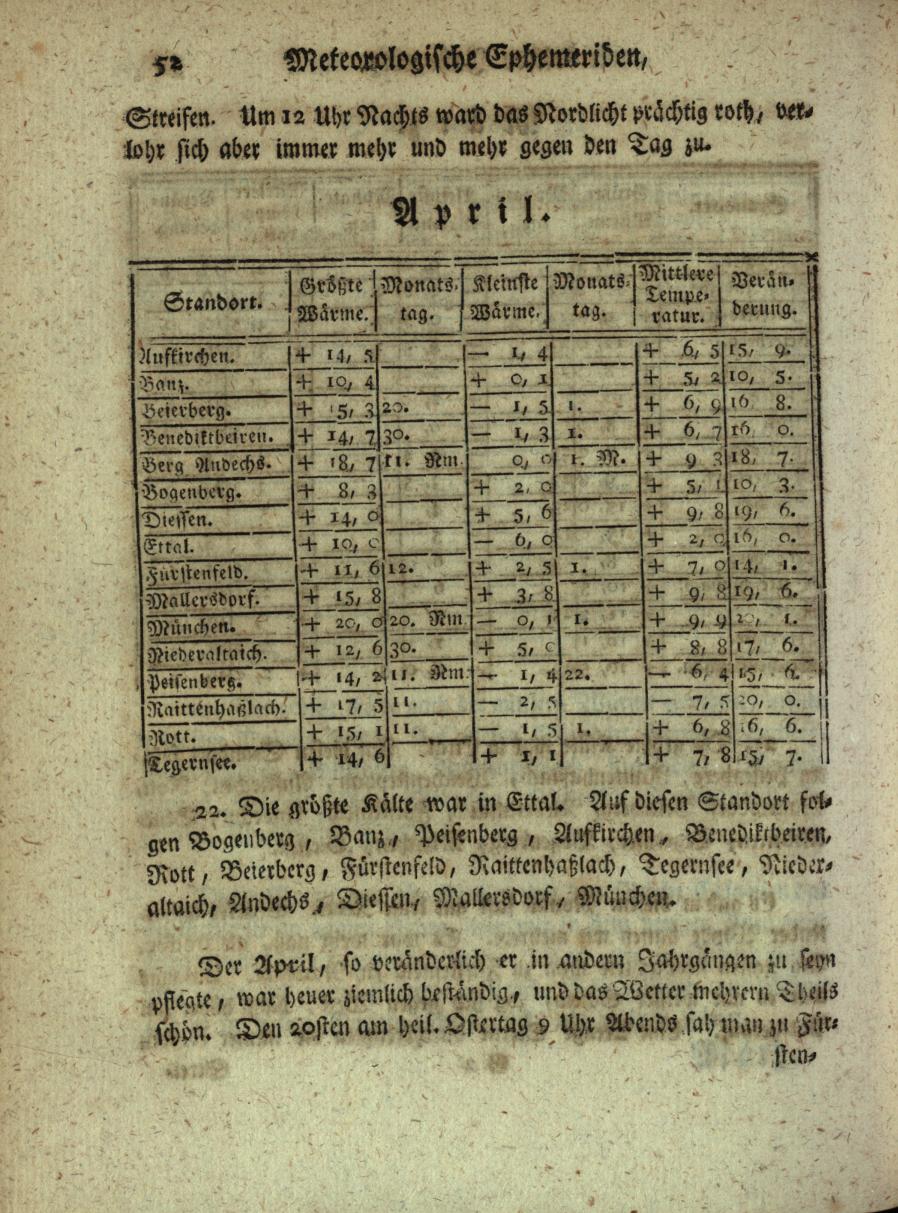 52 Meteorologische Ephemeriden,
Streifen. Um 12 Uhr Nachts ward das Nordlicht prächtig roth, ver-
lohr sich aber immer mehr und mehr gegen den Tag zu.
April.
Standort. Größte Wärme. Monats-tag. Kleinste Wärme. Monats-tag. Mittlere Tempe-ratur. Verän-derung.
Aufkirchen. + 14, 5 — 1, 4 + 6, 5 15, 9.
Banz. + 10, 4 + 0, 1 + 5, 2 10, 5.
Beierberg. + 15, 3 20. — 1, 5 1. + 6, 9 16 8.
Benediktbeiren. + 14, 7 30. — 1, 3 1. + 6, 7 16 0.
Berg Andechs. + 18, 7 11. Nm. 0, 0 1. M. + 9 3 18, 7.
Bogenberg. + 8, 3 + 2, 0 + 5, 1 10, 3.
Diessen. + 14, 0 + 5, 6 + 9, 8 19, 6.
Ettal. + 10, 0 — 6, 0 + 2, 0 16, 0.
Fürstenfeld. + 11, 6 12. + 2, 5 1. + 7, 0 14, 1.
Mallersdorf. + 15, 8 + 3, 8 + 9, 8 19, 6.
München. + 20, 0 20. Nm — 0, 1 1. + 9, 9 20, 1.
Niederaltaich. + 12, 6 30. + 5, 0 + 8, 8 17, 6.
Peisenberg. + 14, 2 11. Nm. — 1, 4 22. — 6, 4 15, 6.
Raittenhaßlach. + 17, 5 11. — 2, 5 — 7, 5 20, 0.
Rott. + 15, 1 11. — 1, 5 1. + 6, 8 16, 6.
Tegernsee. + 14, 6 + 1, 1 + 7, 8 15, 7.
22. Die größte Kälte war in Ettal. Auf diesen Standort fol-
gen Bogenberg, Banz, Peisenberg, Aufkirchen, Benediktbeiren,
Rott, Beierberg, Fürstenfeld, Raittenhaßlach, Tegernsee, Nieder-
altaich, Andechs, Diessen, Mallersdorf, München.
Der April, so veränderlich er in andern Jahrgängen zu seyn
pflegte, war heuer ziemlich beständig, und das Wetter mehrern Theils
schön. Den 20sten am heil. Ostertag 9 Uhr Abends sah man zu Für-
sten-